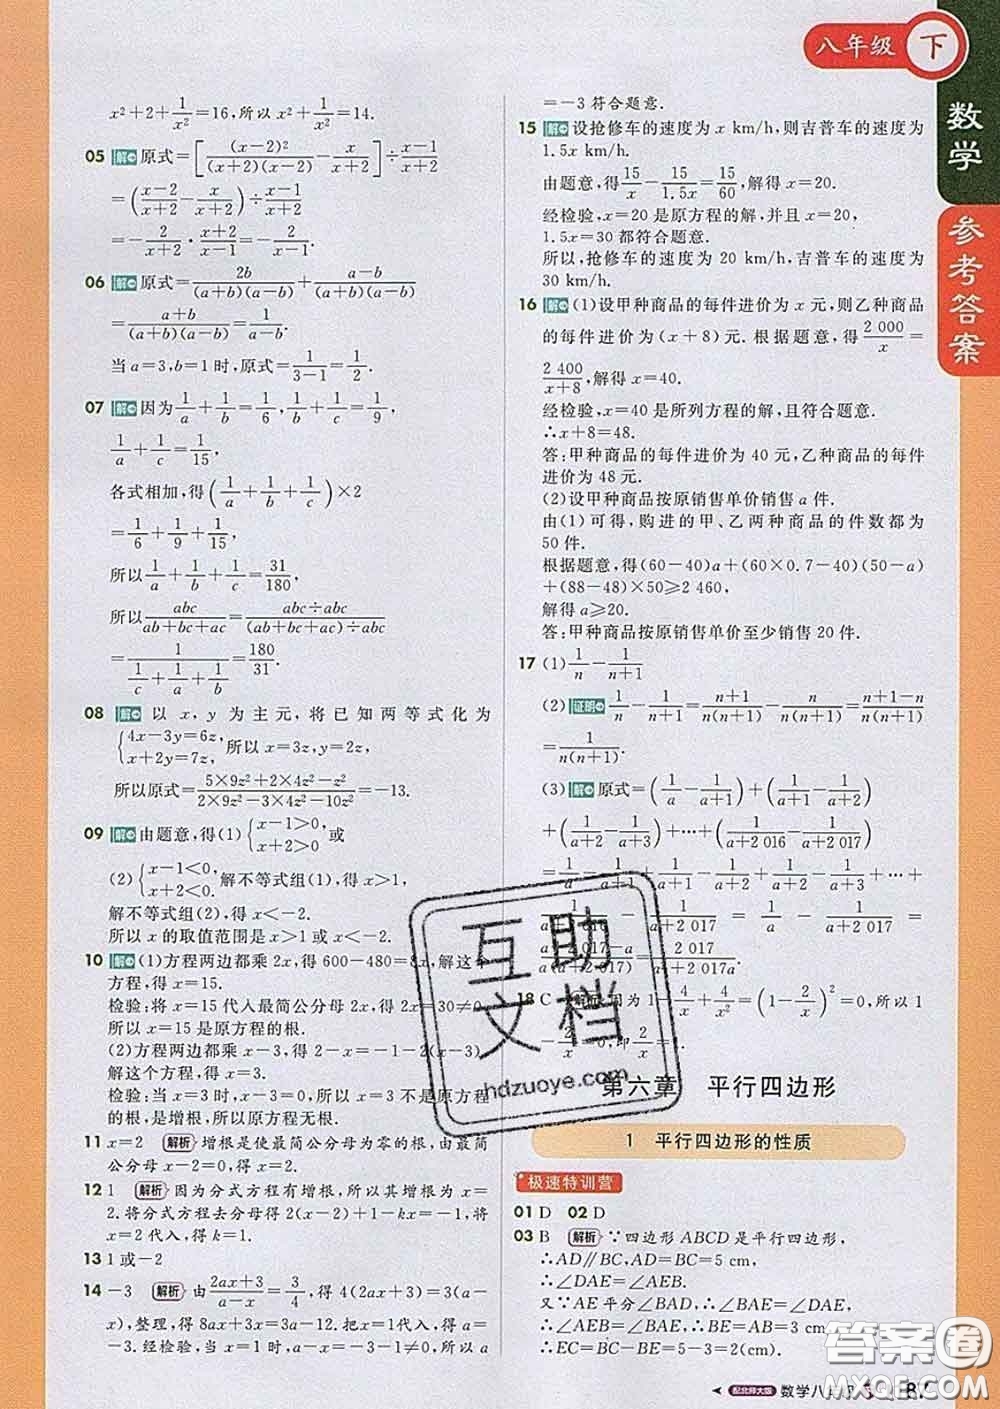 八年级 下
数学
参考答案
x²+2+1/x²=16,所以x²+1/x²=14.
05 解 原式=[(x-2)²/((x+2)(x-2))-x/(x+2)]÷(x-1)/(x+2)
=((x-2)/(x+2)-x/(x+2))÷(x-1)/(x+2)
=-2/(x+2)·(x+2)/(x-1)=-2/(x-1).
06 解 原式=2b/((a+b)(a-b))+(a-b)/((a+b)(a-b))
=(a+b)/((a+b)(a-b))=1/(a-b).
当a=3,b=1时,原式=1/(3-1)=1/2.
07 解 因为1/a+1/b=1/6,1/b+1/c=1/9,
1/a+1/c=1/15,
各式相加,得(1/a+1/b+1/c)×2
=1/6+1/9+1/15,
所以1/a+1/b+1/c=31/180,
所以abc/(ab+bc+ac)=(abc÷abc)/((ab+bc+ac)÷abc)
=1/(1/a+1/b+1/c)=180/31.
08 解 以x,y为主元,将已知两等式化为
{4x-3y=6z, x+2y=7z, 所以x=3z,y=2z,
所以原式=(5×9z²+2×4z²-z²)/(2×9z²-3×4z²-10z²)=-13.
09 解 由题意,得(1){x-1>0, x+2>0 或
(2){x-1<0, x+2<0. 解不等式组(1),得x>1,
解不等式组(2),得x<-2.
所以x的取值范围是x>1或x<-2.
10 解 (1)方程两边都乘2x,得600-480=8x,解这个
方程,得x=15.
检验:将x=15代入最简公分母2x,得2x=30≠0,
所以x=15是原方程的根.
(2)方程两边都乘x-3,得2-x=-1-2(x-3)
解这个方程,得x=3.
检验:当x=3时,x-3=0,所以x=3是原方程
的根,是增根,所以原方程无根.
11 x=2 解析 增根是使最简公分母为零的根,由最简
公分母x-2=0,得x=2.
12 1 解析 因为分式方程有增根,所以其增根为x=
2.将分式方程去分母得2(x-2)+1-kx=-1,将
x=2代入,得k=1.
13 1或-2
14 -3 解析 由(2ax+3)/(a-x)=3/4,得4(2ax+3)=3(a-
x),整理,得8ax+3x=3a-12.把x=1代入,得a=
-3.经检验,当x=1时,a-x=-3-1≠0,所以a
=-3符合题意.
15 解 设抢修车的速度为x km/h,则吉普车的速度为
1.5x km/h.
由题意,得15/x-15/1.5x=15/60,解得x=20.
经检验,x=20是原方程的解,并且x=20,
1.5x=30都符合题意.
所以,抢修车的速度为20 km/h,吉普车的速度为
30 km/h.
16 解 (1)设甲种商品的每件进价为x元,则乙种商品
的每件进价为(x+8)元.根据题意,得2 000/x=
2 400/(x+8),解得x=40.
经检验,x=40是所列方程的解,且符合题意.
∴x+8=48.
答:甲种商品的每件进价为40元,乙种商品的每
件进价为48元.
(2)设甲种商品按原销售单价销售a件.
由(1)可得,购进的甲、乙两种商品的件数都为
50件.
根据题意,得(60-40)a+(60×0.7-40)(50-a)
+(88-48)×50≥2 460,
解得a≥20.
答:甲种商品按原销售单价至少销售20件.
17 (1)1/n-1/(n+1)
(2)证明 1/n-1/(n+1)=(n+1)/(n(n+1))-n/(n(n+1))=(n+1-n)/(n(n+1))
=1/(n(n+1)).
(3)解 原式=(1/a-1/(a+1))+(1/(a+1)-1/(a+2))
+(1/(a+2)-1/(a+3))+…+(1/(a+2 016)-1/(a+2 017))
=1/a-1/(a+1)+1/(a+1)-1/(a+2)+1/(a+2)-1/(a+3)+…+
1/(a+2 016)-1/(a+2 017)=1/a-1/(a+2 017)=
(a+2 017-a)/(a(a+2 017))=2 017/(a²+2 017a).
18 C 解析 因为1-4/x+4/x²=(1-2/x)²=0,所以1
-2/x=0,即2/x=1.
第六章 平行四边形
1 平行四边形的性质
极速特训营
01 D 02 D
03 B 解析 ∵四边形ABCD是平行四边形,
∴AD∥BC,AD=BC=5 cm,
∴∠DAE=∠AEB.
又∵AE平分∠BAD,∴∠BAE=∠DAE,
∴∠AEB=∠BAE,∴BE=AB=3 cm,
∴EC=BC-BE=5-3=2(cm).
配北师大版 数学八年级 87
互助
文档
hdzuoye.com
答案圈
MXQE.COM